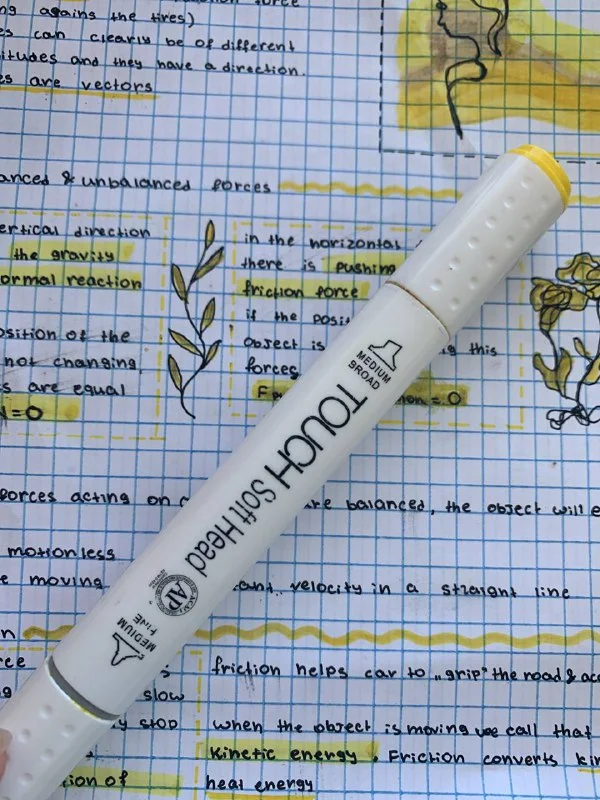 ng agains the tires)
es can clearly be of different
itudes and they have a direction.
es are vectors
anced & unbalanced forces
ertical direction
the gravity
ormal reaction
osition of the
not changing,
s are equal
N=0
in the horizontal
there is pushing
friction force
if the posit
object is g this
forces
F on = 0
MEDIUM
BROAD
TOUCH Soft Head
AP
MEDIUM
FINE
forces acting on are balanced, the object will
motionless
e moving ant velocity in a straight line
n
rce
ng slow
y stop
tion of
friction helps car to „grip" the road & acc
when the object is moving we call that
Kinetic energy. Friction converts kin
heat energy